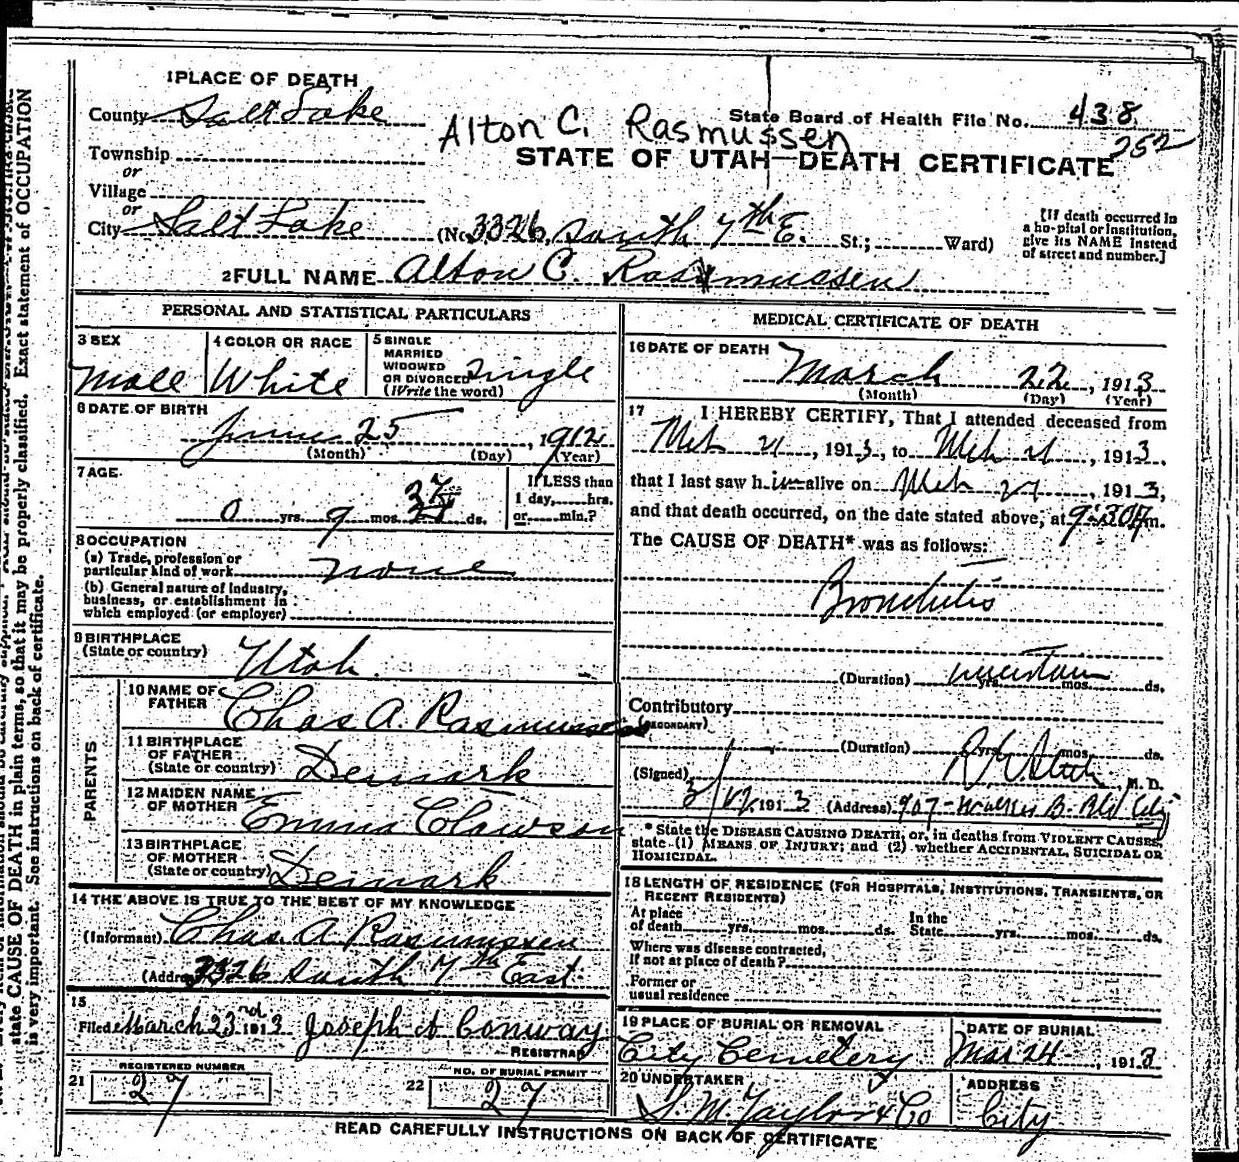 1 PLACE OF DEATH
County Salt Lake
State Board of Health File No. 438
252
Alton C. Rasmussen
Township
STATE OF UTAH—DEATH CERTIFICATE
or
Village
or
City Salt Lake (No. 3326 South 7th E. St.; Ward)
[If death occurred in a hospital or institution, give its NAME instead of street and number.]
2 FULL NAME Alton C. Rasmussen
PERSONAL AND STATISTICAL PARTICULARS
3 SEX
Male
4 COLOR OR RACE
White
5 SINGLE MARRIED WIDOWED OR DIVORCED (Write the word)
Single
6 DATE OF BIRTH
25, 1912
(Month) (Day) (Year)
7 AGE
0 yrs. 9 mos. ds.
If LESS than 1 day, hrs. or min.?
8 OCCUPATION
(a) Trade, profession or particular kind of work none
(b) General nature of industry, business, or establishment in which employed (or employer)
9 BIRTHPLACE
(State or country) Utah
PARENTS
10 NAME OF FATHER Chas A. Rasmussen
11 BIRTHPLACE OF FATHER (State or country) Demark
12 MAIDEN NAME OF MOTHER Emma Clawson
13 BIRTHPLACE OF MOTHER (State or country) Demark
14 THE ABOVE IS TRUE TO THE BEST OF MY KNOWLEDGE
(Informant) Chas. A. Rasmussen
(Address) 3326 South 7th East
15
Filed March 23rd 1913 Joseph H Conway
REGISTRAR
21 REGISTERED NUMBER
27
22 NO. OF BURIAL PERMIT
27
MEDICAL CERTIFICATE OF DEATH
16 DATE OF DEATH
March 22, 1913
(Month) (Day) (Year)
17 I HEREBY CERTIFY, That I attended deceased from
Mch 21, 1913, to Mch 21, 1913,
that I last saw him alive on Mch 21, 1913,
and that death occurred, on the date stated above, at 9:30 m.
The CAUSE OF DEATH* was as follows:
Bronchitis
(Duration) uncertain yrs. mos. ds.
Contributory
(SECONDARY)
(Duration) yrs. mos. ds.
(Signed) M. D.
1913 (Address) 907 Walker B. Bld City
* State the DISEASE CAUSING DEATH, or, in deaths from VIOLENT CAUSES, state (1) MEANS OF INJURY; and (2) whether ACCIDENTAL, SUICIDAL OR HOMICIDAL.
18 LENGTH OF RESIDENCE (FOR HOSPITALS, INSTITUTIONS, TRANSIENTS, OR RECENT RESIDENTS)
At place of death yrs. mos. ds. In the State yrs. mos. ds.
Where was disease contracted, If not at place of death?
Former or usual residence
19 PLACE OF BURIAL OR REMOVAL
City Cemetery
DATE OF BURIAL
Mar 24, 1913
20 UNDERTAKER
S. M. Taylor & Co
ADDRESS
City
READ CAREFULLY INSTRUCTIONS ON BACK OF CERTIFICATE
state CAUSE OF DEATH in plain terms, so that it may be properly classified. Exact statement of OCCUPATION
is very important. See instructions on back of certificate.